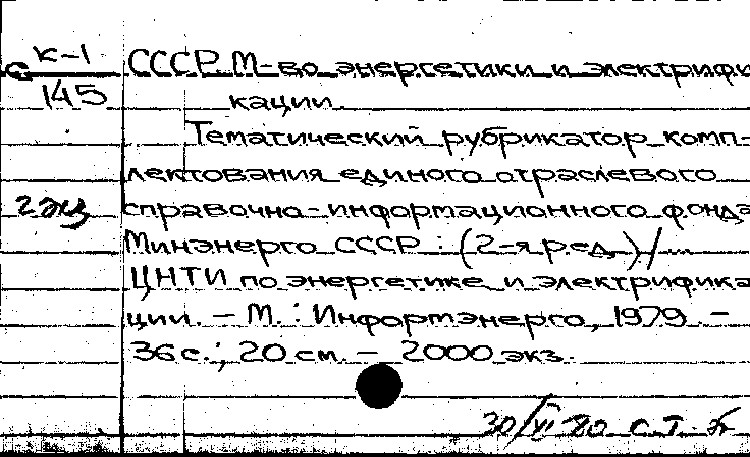 К-1
С
145
СССР. М-во энергетики и электрифи
кации.
Тематический рубрикатор комп-
лектования единого отраслевого
2 экз
справочно-информационного фонда
Минэнерго СССР : (2-я ред.) / ...
ЦНТИ по энергетике и электрифика
ции. – М. : Информэнерго, 1979. –
36 с.; 20 см. – 2000 экз.
30/VI 80 С.Т.